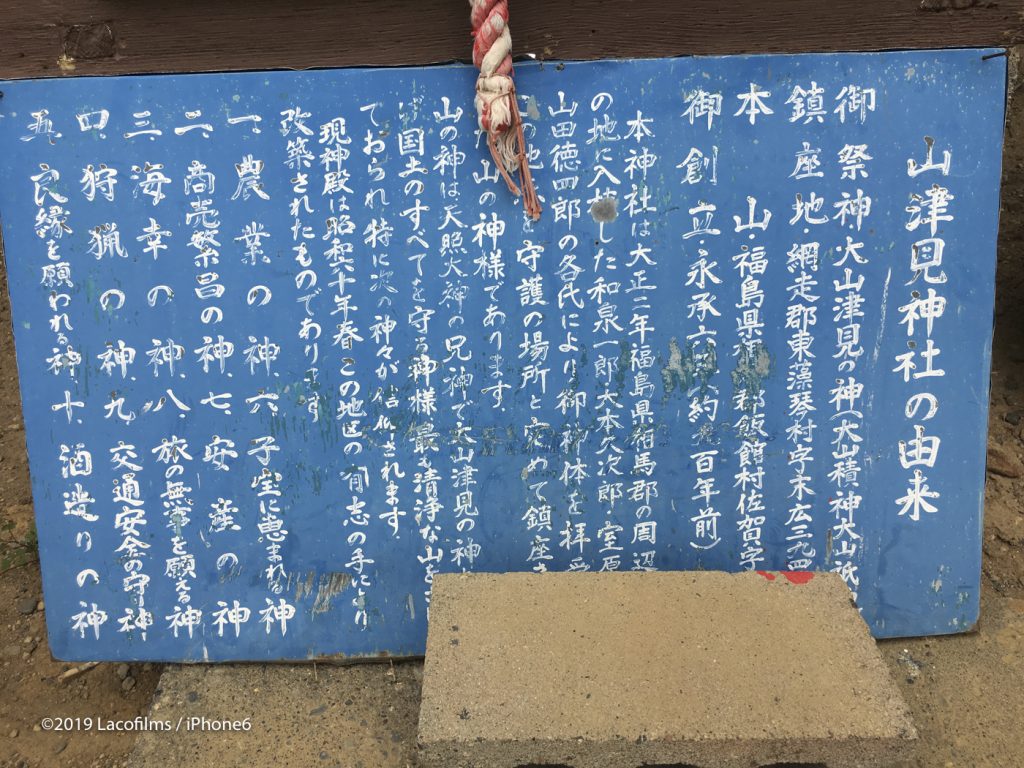 山津見神社の由来
御祭神・大山津見の神(大山積神大山祇
鎮座地・網走郡東藻琴村字末広三九四
本山・福島県 郡飯館村佐賀字
御創立・永承六 (約 百年前)
本神社は大正二年福島県相馬郡の周辺
の地に入植した和泉一郎大本久次郎室原
山田徳四郎の各氏により御神体を拝
の地 を守護の場所と定めて鎮座さ
山の神様であります。
山の神は天照大神の兄神で大山津見の神
は国土のすべてを守る神様最も清浄な山を
ておられ特に次の神々が信仰されます。
現神殿は昭和六十年春この地区の有志の手により
改築されたものであります
一、農業の神、六、子宝に恵まれる神
二、商売繁昌の神、七、安産の神
三、海幸の神、八、旅の無事を願える神
四、狩猟の神、九、交通安全の守神
五、良縁を願われる神、十、酒造りの神
©2019 Lacofilms / iPhone6